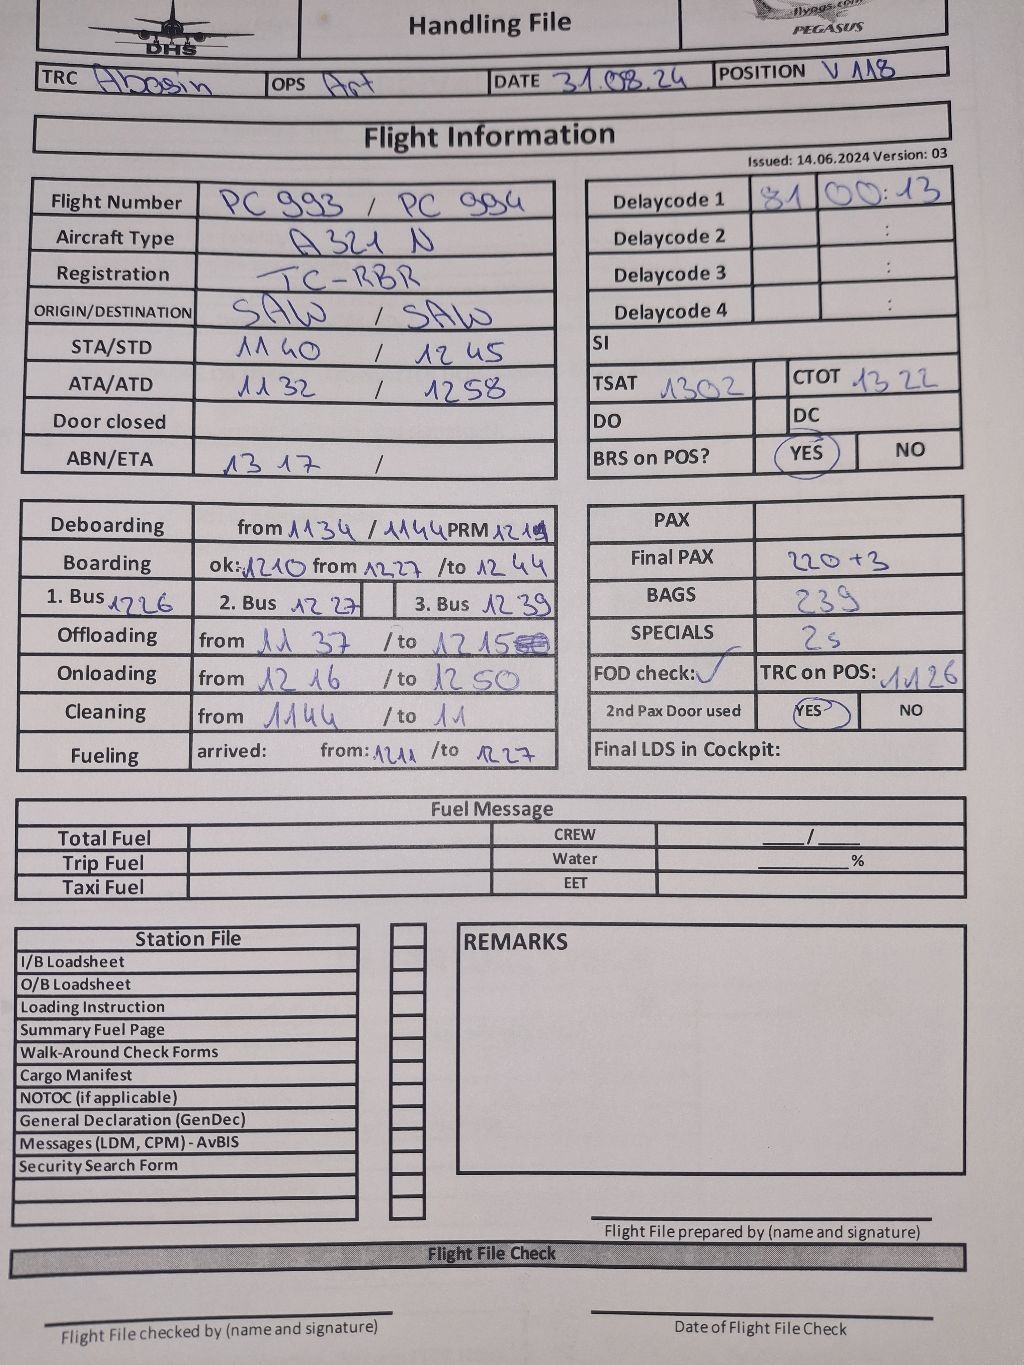 DHS
Handling File
flypgs.com
PEGASUS
TRC Abasin OPS Art DATE 31.08.24 POSITION V 118
Flight Information
Issued: 14.06.2024 Version: 03
Flight Number PC 993 / PC 994
Aircraft Type A 321 N
Registration TC-RBR
ORIGIN/DESTINATION SAW / SAW
STA/STD 11 40 / 12 45
ATA/ATD 11 32 / 12 58
Door closed
ABN/ETA 13 17 /
Delaycode 1 81 00:13
Delaycode 2 :
Delaycode 3 :
Delaycode 4 :
SI
TSAT 1302 CTOT 13 22
DO DC
BRS on POS? YES NO
Deboarding from 1134 / 1144 PRM 1214
Boarding ok: 1210 from 1227 /to 12 44
1. Bus 1226 2. Bus 12 27 3. Bus 12 39
Offloading from 11 37 /to 12 15
Onloading from 12 16 /to 12 50
Cleaning from 1144 /to 11
Fueling arrived: from: 1211 /to 1227
PAX
Final PAX 220 +3
BAGS 239
SPECIALS 2s
FOD check: ✓ TRC on POS: 1126
2nd Pax Door used YES NO
Final LDS in Cockpit:
Fuel Message
Total Fuel CREW ____/____
Trip Fuel Water ________%
Taxi Fuel EET
Station File
I/B Loadsheet
O/B Loadsheet
Loading Instruction
Summary Fuel Page
Walk-Around Check Forms
Cargo Manifest
NOTOC (if applicable)
General Declaration (GenDec)
Messages (LDM, CPM) - AvBIS
Security Search Form
REMARKS
Flight File prepared by (name and signature)
Flight File Check
Flight File checked by (name and signature)
Date of Flight File Check